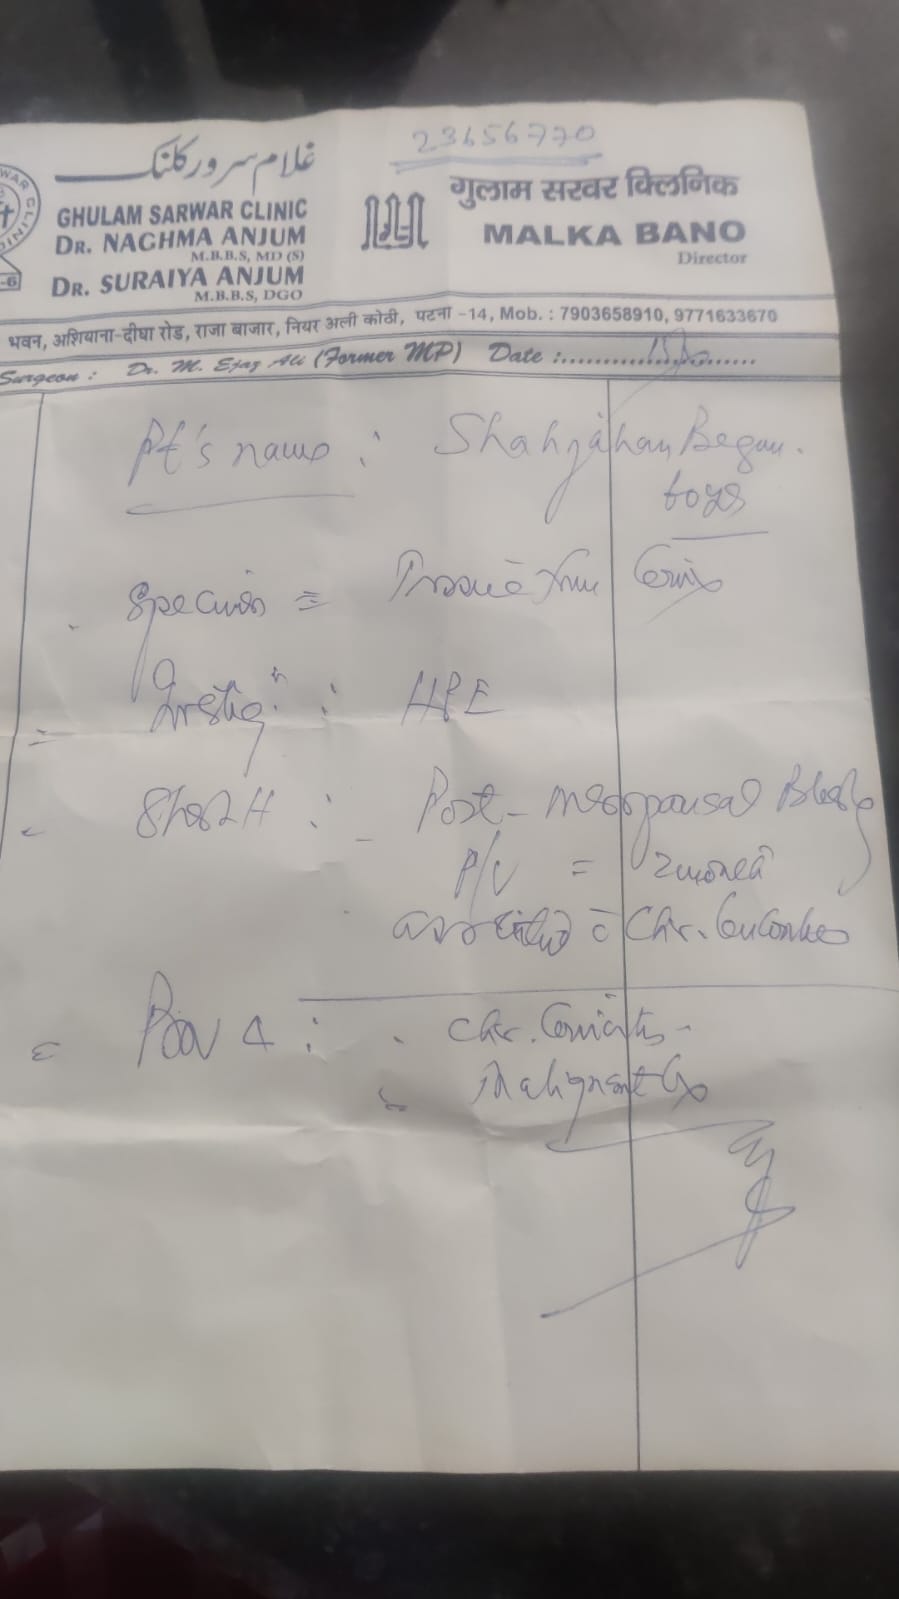 23656770
غلام سرور کلنک
GHULAM SARWAR CLINIC
DR. NAGHMA ANJUM
M.B.B.S, MD (S)
DR. SURAIYA ANJUM
M.B.B.S, DGO
गुलाम सरवर क्लिनिक
MALKA BANO
Director
भवन, अशियाना-दीघा रोड, राजा बाजार, नियर अली कोठी, पटना -14, Mob. : 7903658910, 9771633670
Surgeon : Dr. M. Ejaz Ali (Former MP) Date :
Pt's name : Shahjahan Begum.
60yrs
Specimen = Tissue from Cervix
Investig.n : HPE
Short H : - Post-menopausal Bleeding
P/V =
associated c̄ Chr.
Prov Δ : . Chr. Cervicitis -
Malignant Cx